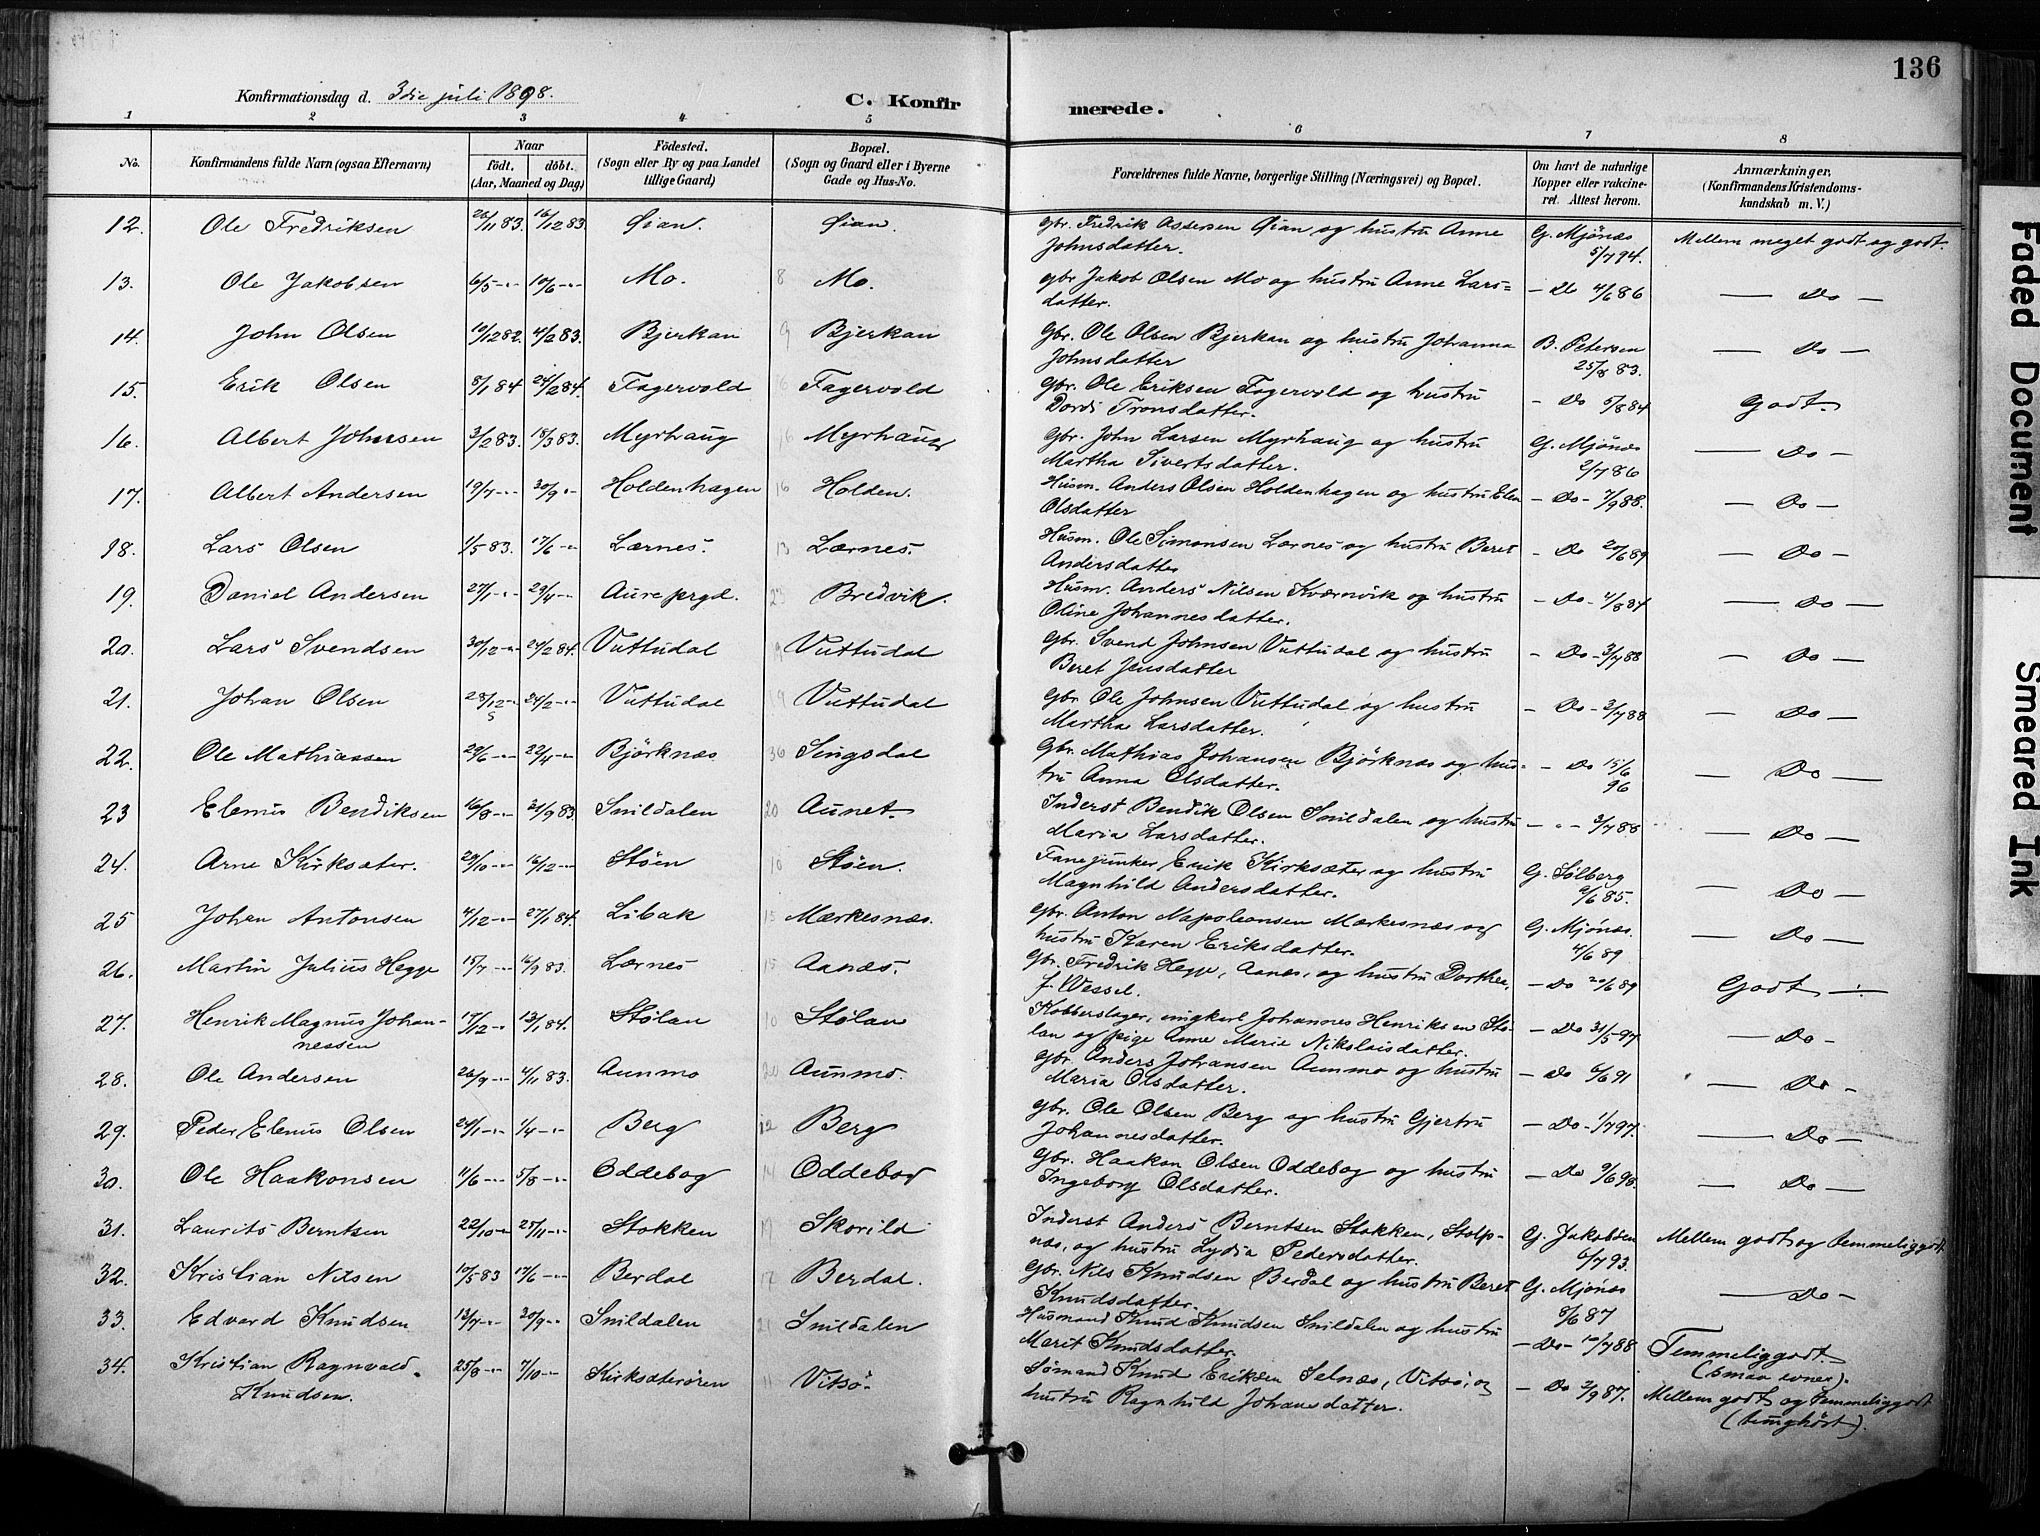 136
Konfirmationsdag d. 3die juli 1898.
C. Konfirmerede.
1 2 3 4 5 6 7 8
No. | Konfirmandens fulde Navn (ogsaa Efternavn) | Naar født. døbt. (Aar, Maaned og Dag) | Fødested. (Sogn eller By og paa Landet tillige Gaard) | Bopæl. (Sogn og Gaard eller i Byerne Gade og Hus-No. | Forældrenes fulde Navne, borgerlige Stilling (Næringsvei) og Bopæl. | Om havt de naturlige Kopper eller vaccineret. Attest herom. | Anmærkninger, (Konfirmandens Kristendomskundskab m. V.)
12. Ole Fredriksen 26/11 83. 16/12 83. Øian. Øian. Gbr. Fredrik Assersen Øian og hustru Anne Johnsdatter. G. Mjönes 5/7 94. Mellem meget godt og godt.
13. Ole Jakobsen 6/5 -"- 10/6 -"- Mo. 8 Mo. gbr Jakob Olsen Mo og hustru Anne Larsdatter. - Do 4/6 86 — Do —
14. John Olsen 10/12 82. 4/2 83. Bjerkan 9 Bjerkan Gbr. Ole Olsen Bjerkan og hustru Johanna Johnsdatter B. Petersen 25/8 83. — Do —
15. Erik Olsen 8/1 84 24/2 84. Fagervold 16 Fagervold Gbr. Ole Eriksen Fagervold og hustru Dordi Tronsdatter. - Do 5/8 84 Godt.
16. Albert Johnsen 3/2 83. 18/3 83. Myrhaug 16 Myrhaug Gbr. John Larsen Myrhaug og hustru Martha Sivertsdatter. G. Mjönes 2/7 86 — Do —
17. Albert Andersen 19/7 -"- 30/9 -"- Holdenhagen 16 Holden. Husm. Anders Olsen Holdenhagen og hustru Elen Olsdatter - Do - 7/9 88. — Do —
18. Lars Olsen 1/5 83. 17/6 -"- Lærnes. 13 Lærnes. Husm. Ole Simonsen Lærnes og hustru Beret Andersdatter - Do 20/6 89 — Do —
19. Daniel Andersen 27/1 -"- 29/4 -"- Aure prgd. 23 Bredvik. Husm. Anders Nilsen Kværnvik og hustru Oline Johannesdatter. - Do - 4/8 84 — Do —
20. Lars Svendsen 30/12 -"- 24/2 84. Vuttudal 19 Vuttudal Gbr. Svend Johnsen Vuttudal og hustru Beret Jensdatter - Do - 3/7 88 — Do —
21. Johan Olsen 28/12 -"- 24/2 -"- Vuttudal 19 Vuttudal Gbr. Ole Johnsen Vuttudal og hustru Martha Larsdatter. - Do - 3/7 88 — Do —
22. Ole Mathiassen 29/6 -"- 22/4 -"- Björknæs 36 Singsdal Gbr. Mathias Johansen Björknæs og hustru Anna Olsdatter. - Do 15/6 96 — Do —
23 Elenus Bendiksen 16/8 -"- 21/9 83. Snildalen 20 Aunet. Inderst Bendik Olsen Snildalen og hustru Maria Larsdatter. - " - 3/7 88 — Do —
24. Arne Kirksæter. 29/10 -"- 16/12 -"- Støen 10 Støen. Fanejunker Erik Kirksæter og hustru Magnhild Andersdatter. G. Solberg 2/6 85. — Do —
25 Johan Antonsen 4/12 -"- 27/1 84. Libak 15 Mærkesnæs. Gbr. Anton Napoleonsen Mærkesnæs og hustru Karen Eriksdatter. G. Mjönes. 4/6 89 — Do —
26. Martin Julius Hegge 15/7 -"- 16/9 83. Lærnes 15 Aanæs. Gbr. Fredrik Hegge, Aanæs, og hustru Dorthea, f. Wessel. - Do 20/6 89 Godt
27. Henrik Magnus Johannessen 17/12 -"- 13/1 84. Stølan 10 Stølan Kobberslager, ungkarl Johannes Henriksen Stølan og pige Anne Marie Nikolaisdatter. - Do 31/5 97 — Do -
28. Ole Andersen 26/9 -"- 4/11 83. Aunmo 20 Aunmo. Gbr. Anders Johansen Aunmo og hustru Maria Olsdatter. - Do 6/6 91 — Do -
29. Peder Elenus Olsen 24/1 -"- 1/4 -"- Berg 12 Berg gbr. Ole Olsen Berg og hustru Gjertru Johannesdatter. - Do - 1/7 97. — Do —
30. Ole Haakonsen 11/6 -"- 5/8 -"- Oddebog 14 Oddebog Gbr. Haakon Olsen Oddebog og hustru Ingeborg Olsdatter. - Do 9/6 90. — Do —
31. Laurits Berntsen 22/10 -"- 25/11 -"- Stokken 17 Skorild Inderst Anders Berntsen Stokken, Stolpnæs, og hustru Lydia Pedersdatter. G. Jakobsen 6/7 93. Mellem godt og temmeliggodt.
32. Kristian Nilsen 10/5 83 17/6 -"- Berdal 17 Berdal. Gbr. Nils Knudsen Berdal og hustru Beret Knudsdatter. G. Mjönes 8/6 87 — Do -
33. Edvard Knudsen 13/7 -"- 30/9 -"- Snildalen 21 Snildalen Husmand Knud Knudsen Snildalen og hustru Marit Knudsdatter. - Do - 10/7 88 Temmeliggodt. (Smaa evner).
34. Kristian Ragnvald Knudsen. 25/8 -"- 7/10 -"- Kirksæterören 11 Vitsö. Sømand Knud Eriksen Selnæs, Vitsö, og hustru Ragnhild Johansdatter. - Do 2/9 87. Mellem godt og temmeliggodt (tunghørt).
Faded Document
Smeared Ink